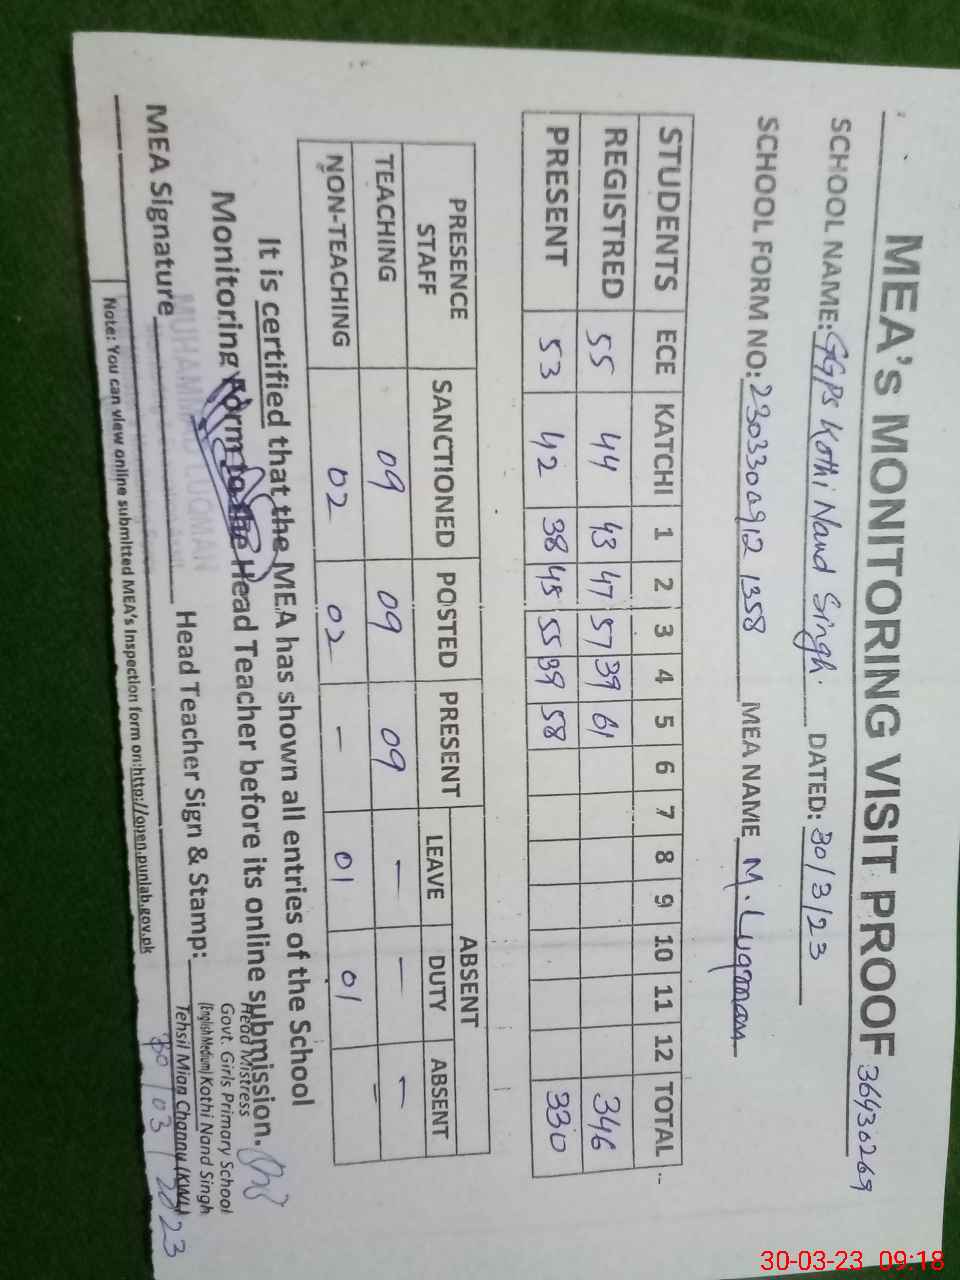 MEA's MONITORING VISIT PROOF 36430269
SCHOOL NAME: GGPS Kothi Nand Singh. DATED: 30/3/23
SCHOOL FORM NO: 2303300912 1358 MEA NAME M. Luqman
STUDENTS ECE KATCHI 1 2 3 4 5 6 7 8 9 10 11 12 TOTAL
REGISTRED 55 44 43 47 57 39 61 346
PRESENT 53 42 38 45 55 39 58 330
PRESENCE STAFF SANCTIONED POSTED PRESENT ABSENT
LEAVE DUTY ABSENT
TEACHING 09 09 09 - - -
NON-TEACHING 02 02 - 01 01 -
It is certified that the MEA has shown all entries of the School
Monitoring form to the Head Teacher before its online submission.
Head Mistress
Govt. Girls Primary School
(English Medium) Kothi Nand Singh
Tehsil Mian Channu (KWL)
MEA Signature Head Teacher Sign & Stamp:
MUHAMMAD LUQMAN
30/03/2023
Note: You can view online submitted MEA's Inspection form on:http://open.punlab.gov.pk
30-03-23 09:18